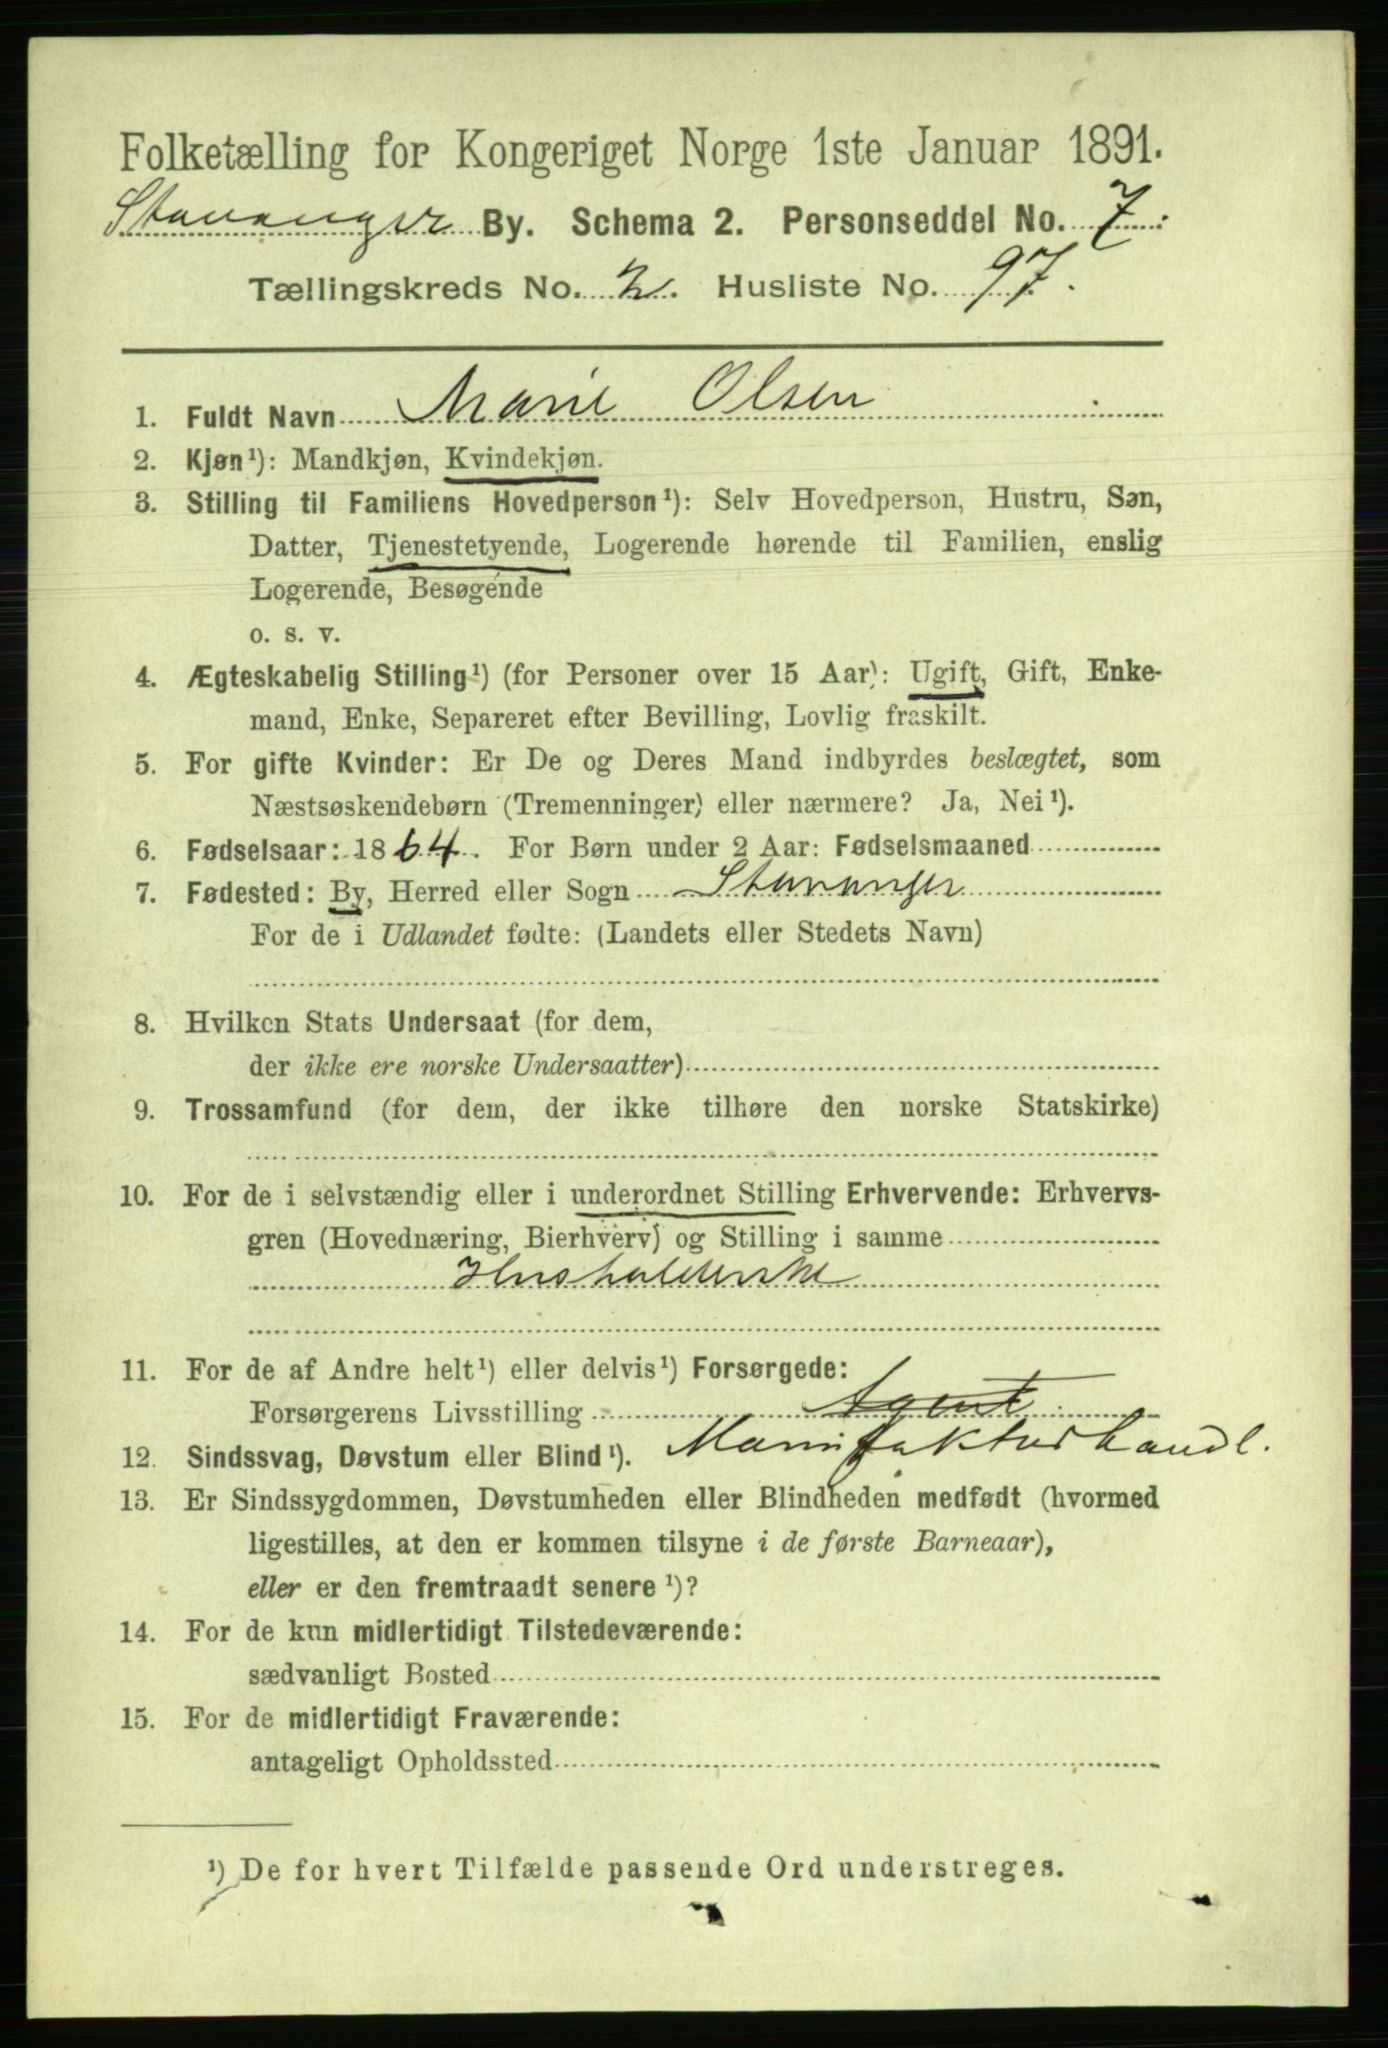 Folketælling for Kongeriget Norge 1ste Januar 1891.
Stavanger By. Schema 2. Personseddel No. 7.
Tællingskreds No. 2. Husliste No. 97.
1. Fuldt Navn Marie Olsen
2. Kjøn¹): Mandkjøn, Kvindekjøn.
3. Stilling til Familiens Hovedperson¹): Selv Hovedperson, Hustru, Søn,
Datter, Tjenestetyende, Logerende hørende til Familien, enslig
Logerende, Besøgende
o. s. v.
4. Ægteskabelig Stilling¹) (for Personer over 15 Aar): Ugift, Gift, Enke-
mand, Enke, Separeret efter Bevilling, Lovlig fraskilt.
5. For gifte Kvinder: Er De og Deres Mand indbyrdes beslægtet, som
Næstsøskendebørn (Tremenninger) eller nærmere? Ja, Nei¹).
6. Fødselsaar: 1864. For Børn under 2 Aar: Fødselsmaaned
7. Fødested: By, Herred eller Sogn Stavanger
For de i Udlandet fødte: (Landets eller Stedets Navn)
8. Hvilken Stats Undersaat (for dem,
der ikke ere norske Undersaatter)
9. Trossamfund (for dem, der ikke tilhøre den norske Statskirke)
10. For de i selvstændig eller i underordnet Stilling Erhvervende: Erhvervs-
gren (Hovednæring, Bierhverv) og Stilling i samme
Husholderske
11. For de af Andre helt¹) eller delvis¹) Forsørgede:
Forsørgerens Livsstilling Agent
Manufakturhandl.
12. Sindssvag, Døvstum eller Blind¹).
13. Er Sindssygdommen, Døvstumheden eller Blindheden medfødt (hvormed
ligestilles, at den er kommen tilsyne i de første Barneaar),
eller er den fremtraadt senere¹)?
14. For de kun midlertidigt Tilstedeværende:
sædvanligt Bosted
15. For de midlertidigt Fraværende:
antageligt Opholdssted
¹) De for hvert Tilfælde passende Ord understreges.